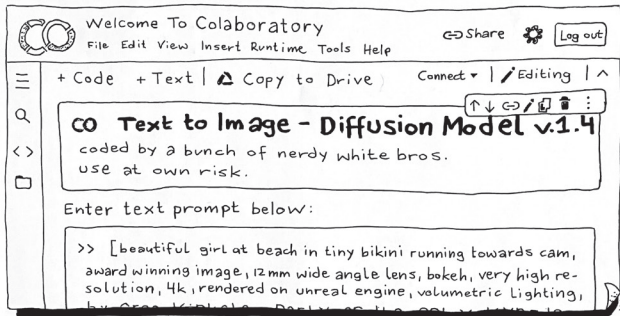 Welcome To Colaboratory
File Edit View Insert Runtime Tools Help
Share
Log out
+ Code + Text | Copy to Drive
Connect | Editing
CO Text to Image - Diffusion Model v.1.4
coded by a bunch of nerdy white bros.
use at own risk.
Enter text prompt below:
>> [beautiful girl at beach in tiny bikini running towards cam,
award winning image, 12mm wide angle lens, bokeh, very high re-
solution, 4k, rendered on unreal engine, volumetric lighting,